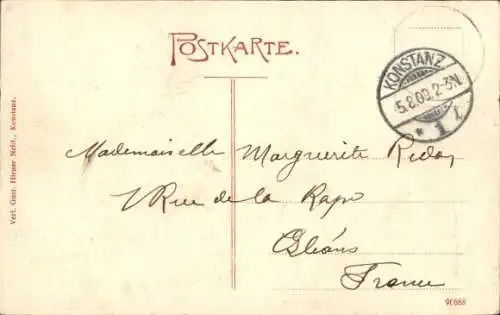 POSTKARTE.
KONSTANZ
-5.8.09.2-3N.
* 1 l
Mademoiselle Marguerite
1 Rue de la Rape
Orléans
France
Verl. Gust. Hirner Nchf., Konstanz.
91688